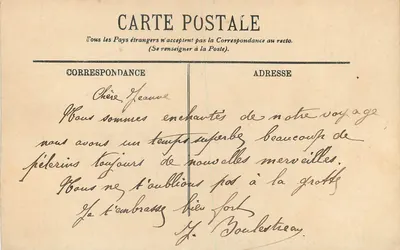 CARTE POSTALE
Tous les Pays étrangers n'acceptent pas la Correspondance au recto.
(Se renseigner à la Poste).
CORRESPONDANCE
ADRESSE
Chère Jeanne
Nous sommes enchantés de notre voyage
nous avons un temps superbe beaucoup de
pélerins toujours de nouvelles merveilles.
Nous ne t'oublions pas à la grotte
Je t'embrasse bien fort